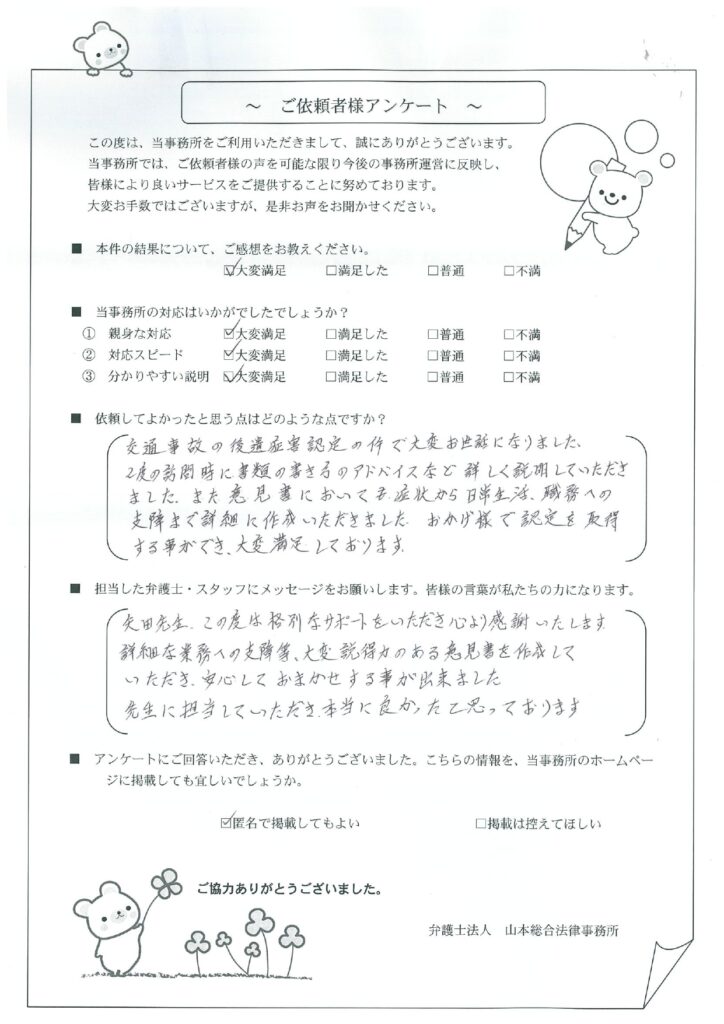 ～ ご依頼者様アンケート ～
この度は、当事務所をご利用いただきまして、誠にありがとうございます。
当事務所では、ご依頼者様の声を可能な限り今後の事務所運営に反映し、
皆様により良いサービスをご提供することに努めております。
大変お手数ではございますが、是非お声をお聞かせください。
■ 本件の結果について、ご感想をお教えください。
☑大変満足 □満足した □普通 □不満
■ 当事務所の対応はいかがでしたでしょうか？
① 親身な対応 ☑大変満足 □満足した □普通 □不満
② 対応スピード ☑大変満足 □満足した □普通 □不満
③ 分かりやすい説明 ☑大変満足 □満足した □普通 □不満
■ 依頼してよかったと思う点はどのような点ですか？
交通事故の後遺症害認定の件で大変お世話になりました、
2度の訪問時に書類の書き方のアドバイスなど詳しく説明していただき
ました。また意見書においても、症状から日常生活、職務への
支障まで詳細に作成いただきました。おかげ様で認定を取得
する事ができ、大変満足しております。
■ 担当した弁護士・スタッフにメッセージをお願いします。皆様の言葉が私たちの力になります。
矢田先生、この度は格別なサポートをいただき心より感謝いたします
詳細な業務への支障等、大変説得力のある意見書を作成して
いただき、安心しておまかせする事が出来ました
先生に担当していただき、本当に良かったと思っております
■ アンケートにご回答いただき、ありがとうございました。こちらの情報を、当事務所のホームペー
ジに掲載しても宜しいでしょうか。
☑匿名で掲載してもよい □掲載は控えてほしい
ご協力ありがとうございました。
弁護士法人 山本総合法律事務所